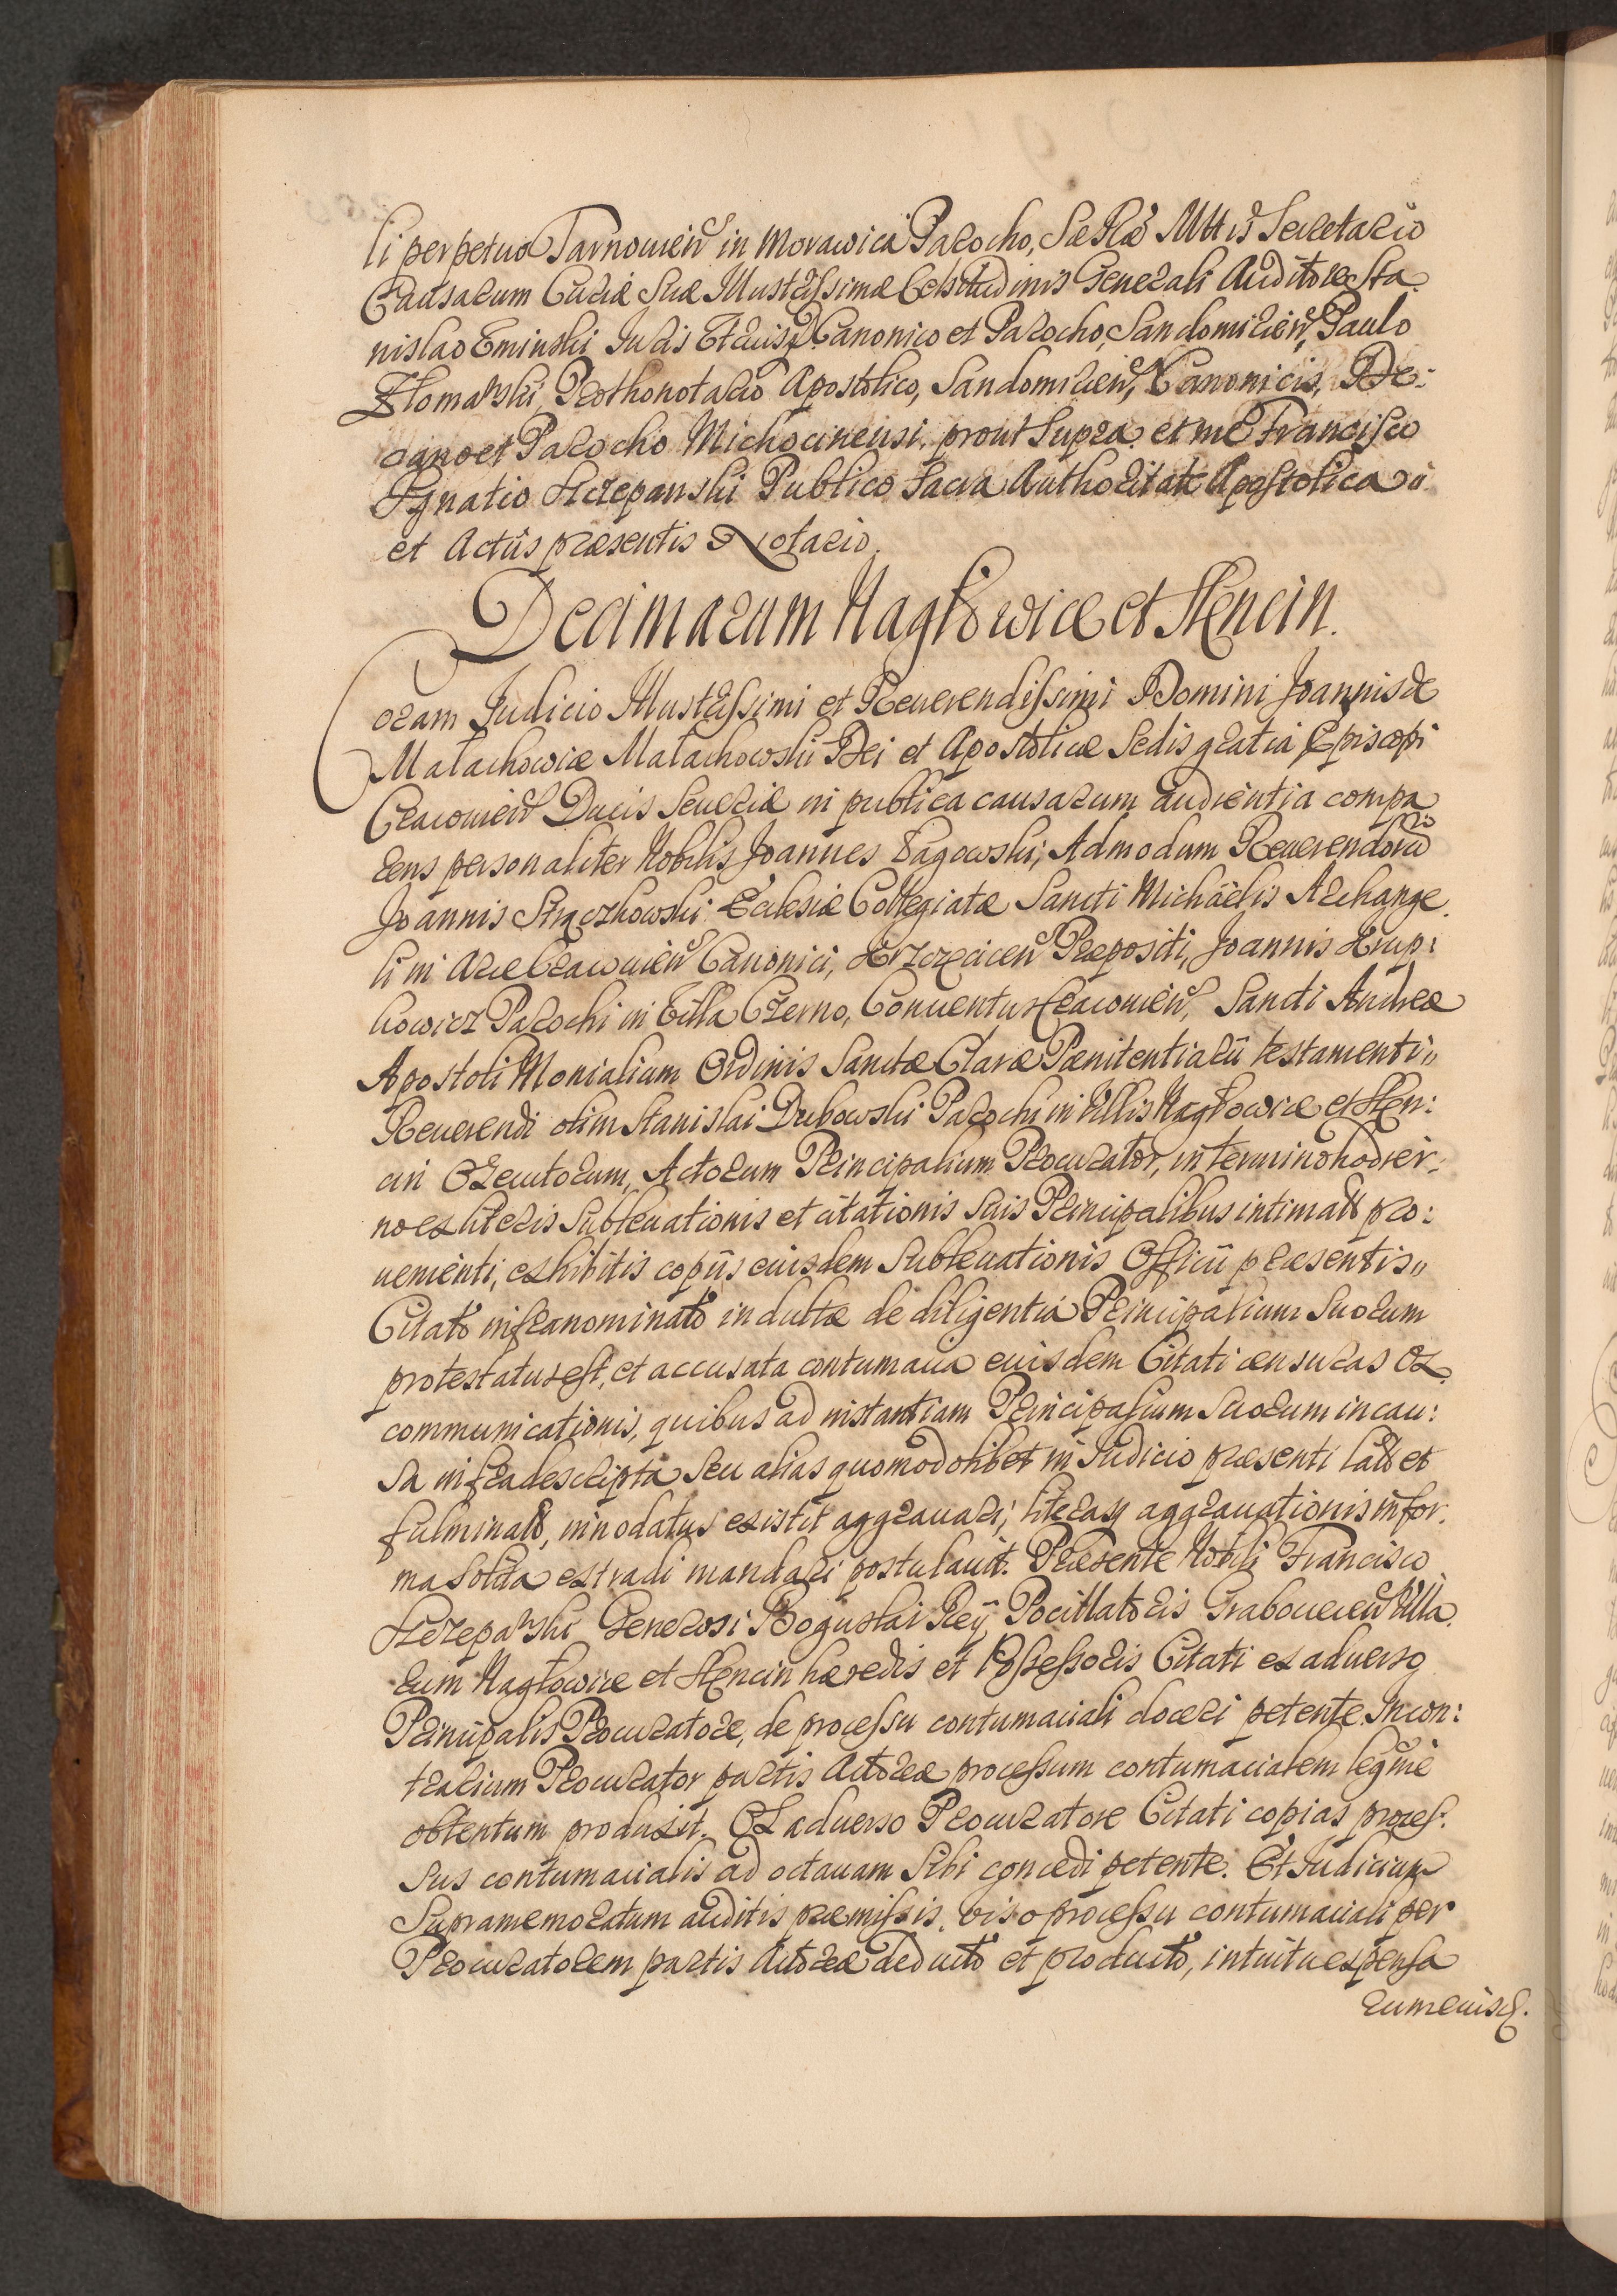 li perpetuo Tarnovień in Morawica Parocho, Sæ Ræ Mttis Secretario
Causarum Curiæ Suæ Illustrissimæ Celsitudinis Generali Auditore Sta
nislao Eminski Juris Utriusq Canonico et Parocho, Sandomirień, Paulo
Złomański, Prothonotario Apostolico, Sandomirień, Canonicis, De:
cano et Parocho Michocinensi, prout Supra, et me Francisco
Ignatio Szczepanski Publico Sacra Authoritate Apostolica
et Actûs præsentis Notario.
Decimarum Nagłowice et Slęncin.
Coram Judicio Illustrissimi et Reverendissimi Domini Joannis de
Małachowice Małachowski Dei et Apostolicæ Sedis gratia Episcopi
Cracovień Ducis Severiæ in publica causarum audientia compa
rens personaliter Nobilis Joannes Łagowski, Admodum Reverendorũ
Joannis Strączkowski Ecclesiæ Collegiatæ Sancti Michaëlis Archange
li in Arce Cracovień Canonici, Præpositi, Joannis Krup:
kowicz Parochi in Villa Czerno, Conventus Cracovień, Sancti Andreæ
Apostoli Monialium Ordinis Sanctæ Claræ Pænitentiarii testamenti
Reverendi olim Stanislai Dubowski Parochi in Villis Nagłowice et Slęn:
cin Exeutorum, Actorum Principalium Procurator, in termino hodier:
no ex literis Sublevationis et citationis Suis Principalibus intimatis pro:
venienti, exhibitis copiis eiusdem Sublevationis Officii præsentis
Citato infranominato indultæ de diligentia Principalium Suorum
protestatus est, et accusata contumacia eiusdem Citati censuras Ex
communicationis, quibus ad instantiam Principalium Suorum in cau:
sa infradescripta Seu alias quomodolibet in Judicio præsenti latis et
fulminatis, innodatus existit aggravari, literasq aggravationis in for
ma solita extradi mandari postulavit. Præsente Nobili Francisco
Szczepański Generosi Boguslai Reÿ Pocillatoris Grabovień Villa
rum Nagłowice et Slęncin hæredis et Possessoris Citati ex adverso
Principalis Procuratore, de processu contumaciali doceri petente. In con:
trarium Procurator partis Actoreæ processum contumacialem legme
obtentum produxit. Ex adverso Procuratore Citati copias proces:
sus contumacialis ad octavam Sibi concedi petente. Et Judicium
Supramemoratum auditis præmissis, viso processu contumaciali per
Procuratorem partis Actoreæ deducto et producto, intuitu expensa
rum eiusq.